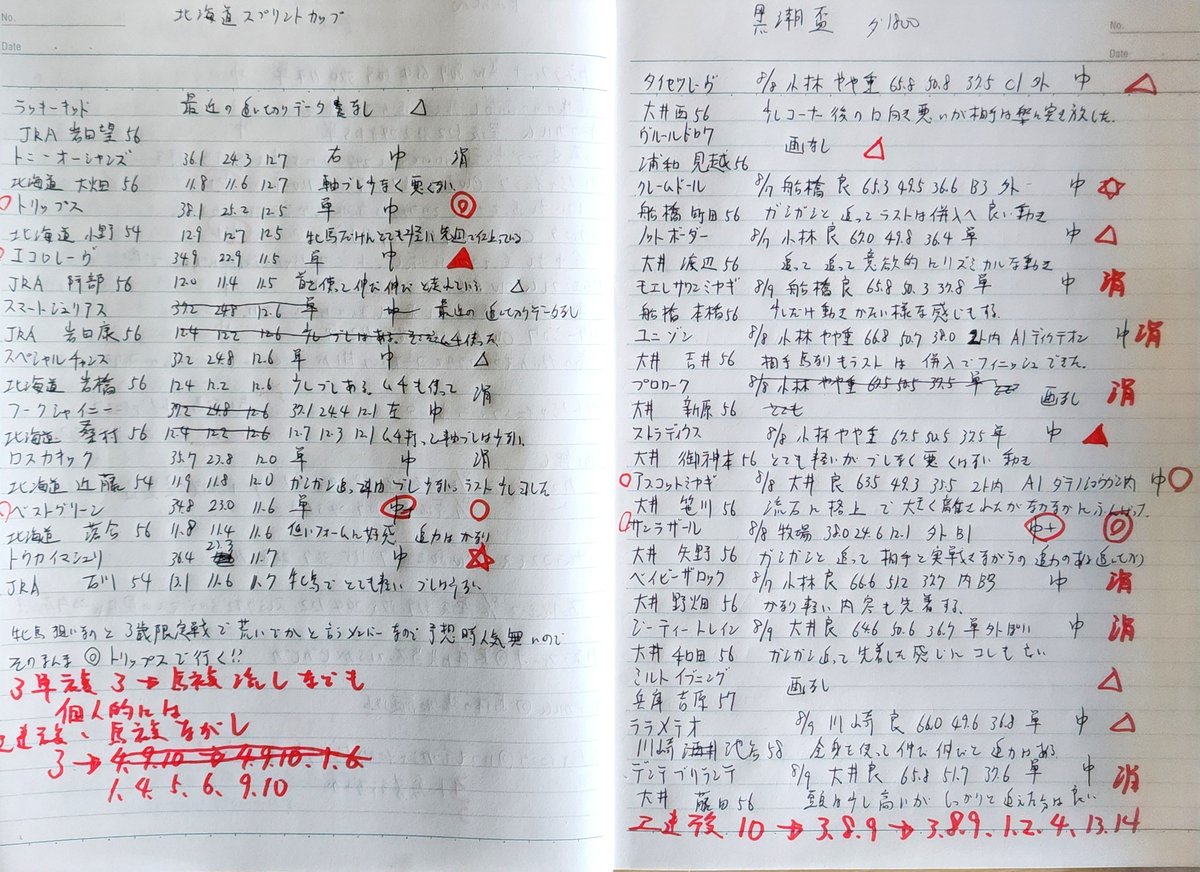 No.
Date
北海道スプリントカップ
ラッキーキッド 最近の追い切りデータなし △
JRA 岩田望 56
トニーオーシャンズ 36.1 24.3 12.7 右 中 消
北海道 大畑 56 11.8 11.6 12.7 軸ブレ少なく悪くない
トリップス 38.1 25.2 12.5 単 中 ◎
北海道 小野 54 12.9 12.7 12.5 牝馬だけんとても軽い
エコロレーヴ 34.9 22.9 11.5 単 中 ▲
JRA 阿部 56 12.0 11.4 11.5 首を使って伸び伸びと走れている △
スマートジュリアス 37.2 24.8 12.6 単 中 最近の追い切りデータなし
JRA 岩田康 56 12.4 12.2 12.6
スペシャルチャンス 37.2 24.8 12.6 単 中 △
北海道 岩橋 56 12.4 12.2 12.6 少しブレある。ムチも使って 消
フークシャイニー 37.2 24.8 12.6 37.1 24.4 12.1 左 中
北海道 桑村 56 12.4 12.2 12.6 12.7 12.3 12.1 ムチ打って軸ブレは少ない
ロスカホック 35.7 23.8 12.0 単 中 消
北海道 近藤 54 11.9 11.8 12.0 ガンガン追 ブレ少ない。ラスト少し
ベストグリーン 34.8 23.0 11.6 単 中 ○
北海道 落合 56 11.8 11.4 11.6 低いフォームに好感 迫力はかなり
トウカイマシェリ 36.4 23.3 11.7 中 ☆
JRA 石川 54 13.1 11.6 11.7 牝馬でとても軽い ブレ少ない
牝馬狙いなのと3歳限定戦で荒いでかと言うメンバーなので予想時人気無いので
そのまんま◎トリップスで行く!!
3単複 3→馬複流しなども
個人的には
3連複、馬複ながし
3→4.9.10→4.9.10.1.6
1.4.5.6.9.10
No.
Date
黒潮盃 ダ1800
タイセツレーヴ 8/8 小林 やや重 65.8 50.8 37.5 C1 外 中 △
大井 西 56 少しコーナー後の口向き悪いが相手は突き放した。
グルールドロワ 画なし △
浦和 見越 56
クレームドール 8/7 船橋 良 65.3 49.5 36.6 B3 外一 中 ☆
船橋 町田 56 ガンガンと追ってラストは併入へ良い動き
ノットボーダー 8/7 小林 良 67.0 49.8 36.4 単 中 △
大井 渡辺 56 追って追って意欲的にリズミカルな動き
モエレサワミヤギ 8/9 船橋 良 65.8 50.3 37.8 単 中 消
船橋 本橋 56 少しだけ動きかたい様な感じもする。
ユニゾン 8/8 小林 やや重 66.8 50.7 38.0 2ト内 A1 ディクテオン 中 消
大井 吉井 56 相手馬なりもラストは併入でフィニッシュできた。
プロローク 8/8 小林 やや重 67.5 50.5 37.5 単 画なし 消
大井 新原 56 とても
ストラディウス 8/8 小林 やや重 67.5 50.5 37.5 単 中 ▲
大井 御神本 56 とても軽いがブレなく悪くはない動き
アスコットミヤギ 8/8 大井 良 63.5 49.3 35.5 2ト内 A1 中 ○
大井 笹川 56 流石に格上で大きく離されたがなかなか
サンラザール 8/8 牧場 38.0 24.6 12.1 外 B1 中+ ◎
大井 矢野 56 ガンガンと追って相手と実戦さながらの迫力のある追い切り
ベイビーザロック 8/7 小林 良 66.6 51.2 37.7 内 B3 中 消
大井 野畑 56 かなり軽い内容も先着する。
ビーティートレイン 8/9 大井 良 64.6 50.6 36.7 単 外ぽい 中 消
大井 和田 56 ガンガン追って先着した感じ
ミルトイブニング 画なし △
兵庫 吉原 57
ララメテオ 8/9 川崎 良 66.0 49.6 36.8 単 中 △
川崎 池谷 58 全身を使って伸び伸びて迫力はある
デンテブリランテ 8/9 大井 良 65.8 51.7 37.6 単 中 消
大井 藤田 56 頭は少し高いがしっかりと追えた分は良い
3連複 10→3.8.9→3.8.9.1.2.4.13.14